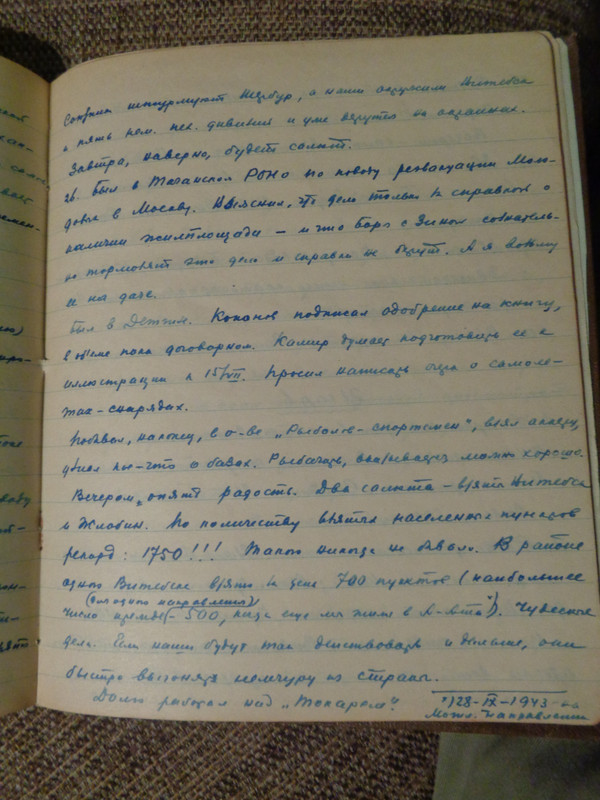 Союзники штурмуют Шербур, а наши окружили Витебск
и пять нем. пех. дивизий и уже дерутся на окраинах.
Завтра, наверно, будет салют.
26. Был в Таганском РОНО по поводу реэвакуации
в Москву. Выяснил, что дело только в справке о
наличии жилплощади – и что с Зиной сознатель-
но тормозят это дело и справки не берут. А я возьму
ее на даче.
Был в Детгизе. Копанов подписал одобрение на книгу,
в объеме пока договорном. Камир думает подготовить ее к
иллюстрации к 15/VII. Просил написать очерк о самоле-
тах-снарядах.
Побывал, наконец, в о-ве „Рыболов-спортсмен", взял анкету,
узнал кое-что о базах. Рыбачить, оказывается можно хорошо.
Вечером опять радость. Два салюта – взяты Витебск
и Жлобин. По количеству взятых населенных пунктов
рекорд: 1750!!! Такого никогда не бывало. В районе
одного Витебска взято за день 700 пунктов (наибольшее
(для одного направления)
число прежде – 500, когда еще мы жили в А-Ата*)). Чудесные
дела. Если наши будут так действовать и дальше, они
быстро выгонят немчуру из страны.
Долго работал над „Токарем".
*) 28-IX-1943 на
Могил. направлении